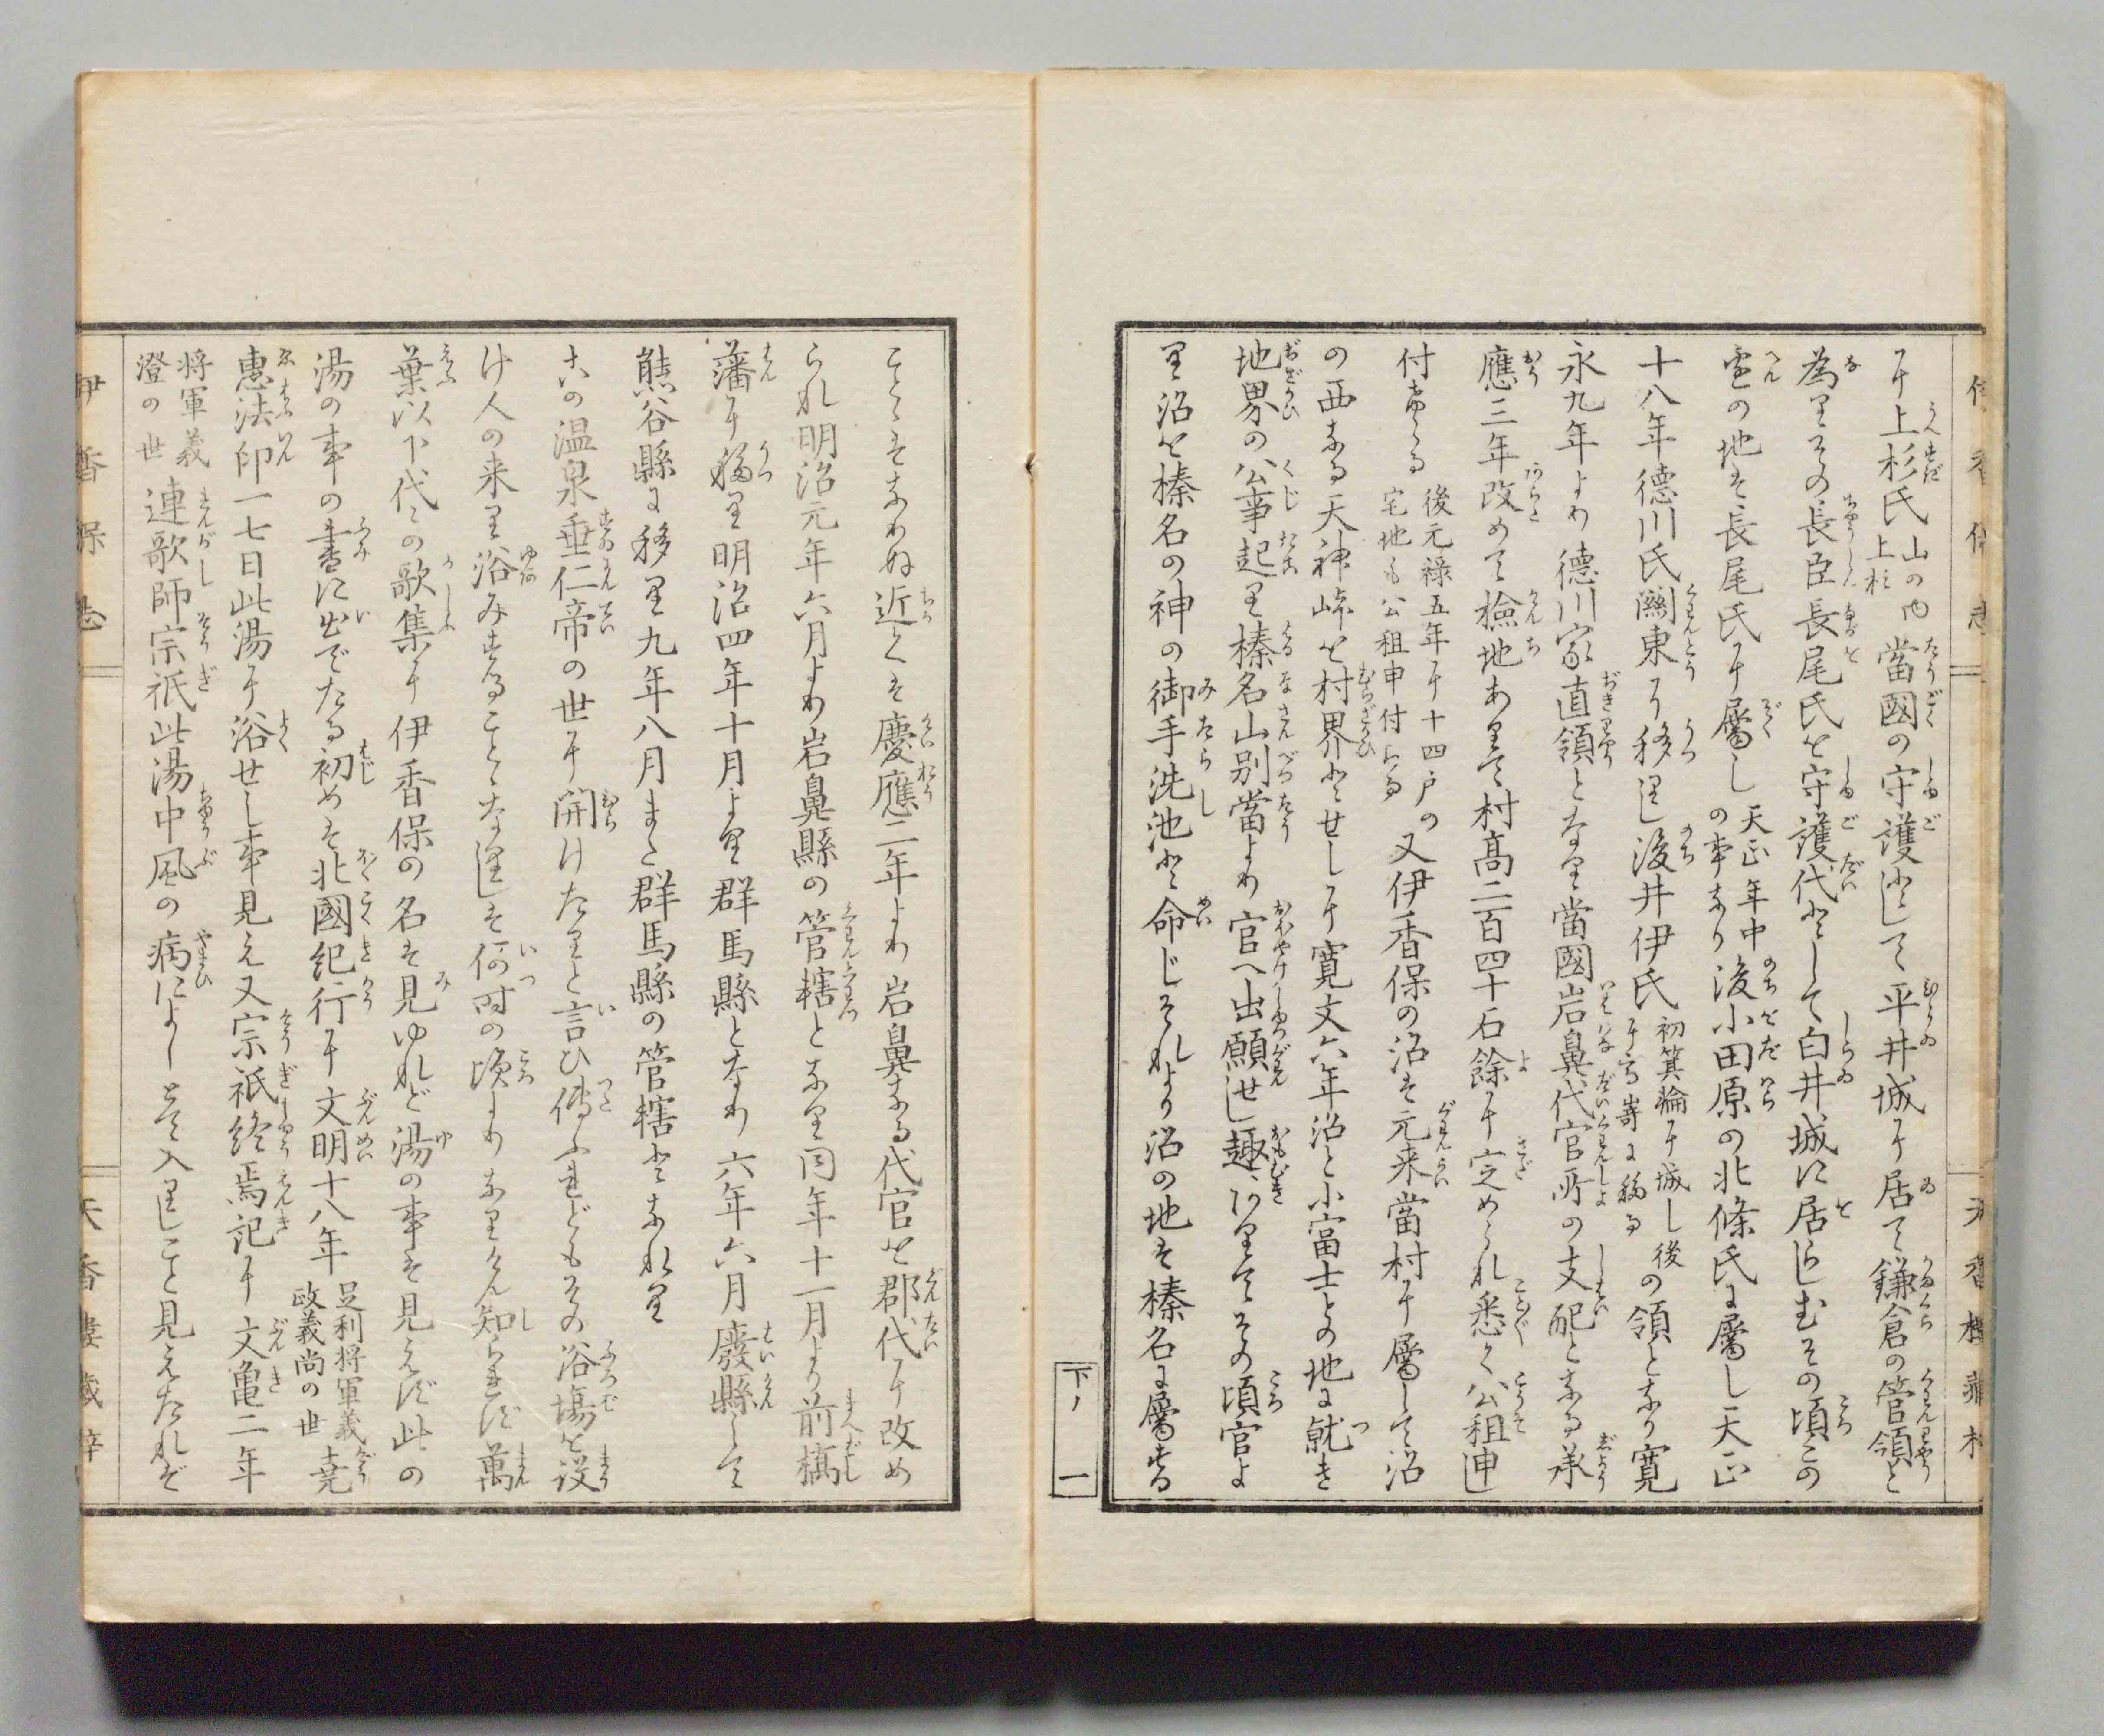 に上杉氏山の内上杉當國の守護として平井城に居て鎌倉の管領と
為りその長臣長尾氏を守護代として白井城に居らしむその頃この
邊の地は長尾氏に屬し天正年中の事なり後小田原の北條氏に屬し天正
十八年德川氏關東に移りし後井伊氏初箕輪に城し後に高嵜に移るの領となり寛
永九年より德川家直領となり當國岩鼻代官所の支配となる承
應三年改めて檢地ありて村髙二百四十石餘に定められ悉く公租申
付らる後元禄五年に十四戸の宅地も公租申付らる又伊香保の沼は元来當村に屬して沼
の西なる天神峠を村界とせしに寛文六年沼と小富士との地に就き
地界の公事起り榛名山別當より官へ出願せし趣ありてその頃官よ
り沼を榛名の神の御手洗池と命じそれより沼の地は榛名に屬する
下ノ一
こととはなりぬ近くは慶應二年より岩鼻なる代官を郡代に改め
られ明治元年六月より岩鼻縣の管轄となり同年十一月より前橋
藩に移り明治四年十月より群馬縣となり六年六月廢縣して
熊谷縣に移り九年八月また群馬縣の管轄となれり
古の温泉垂仁帝の世に開けたりと言ひ傳ふれどもその浴塲を設
け人の来り浴みすることなりしは何时の頃よりなりけん知られず萬
葉以下代々の歌集に伊香保の名は見ゆれど湯の事は見えず此の
湯の事の書に出でたる初めは北國紀行に文明十八年足利将軍義政義尚の世堯
惠法印一七日此湯に浴せし事見え又宗祇終焉記に文亀二年
将軍義澄の世連歌師宗祇此湯中風の病によしとて入りしこと見えたれど
伊香保志
天香樓蔵梓